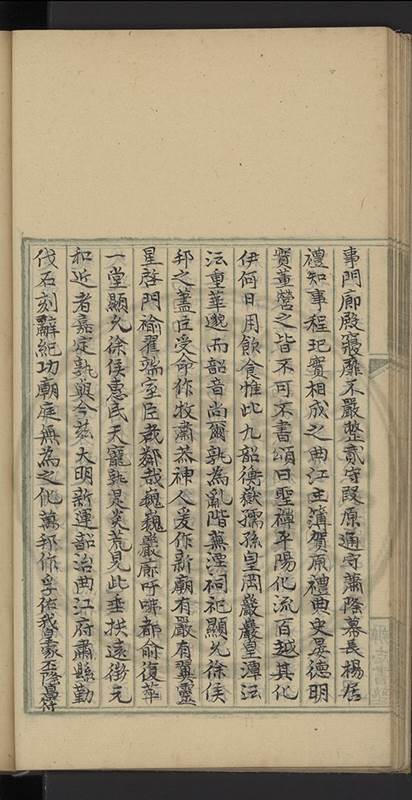 事門廊殿寢靡不嚴整貳守段原通守蕭隆幕長楊居
禮知事程玘實相成之曲江主簿賀原禮典史晏德明
實董營之皆不可不書頌曰聖禪平陽化流百越其化
伊何日用飲食惟此九韶衡嶽孺孫皇岡巖巖皇潭沄
沄重華邈而韶音尚爾孰為亂階蕪湮祠祀顯允徐侯
邦之藎臣受命作牧肅恭神人爰作新廟有嚴有翼靈
星啓門褕翟端室臣哉鄰哉巍巍嚴廊吁咈都俞復華
一堂顯允徐侯惠民天寵孰是炎荒見此垂拱遠徵元
和近者嘉定孰與今茲大明新運韶治曲江府肅縣勤
伐石刻辭紀功廟庭無為之化萬邦作孚佑我皇家丕隆嘉符